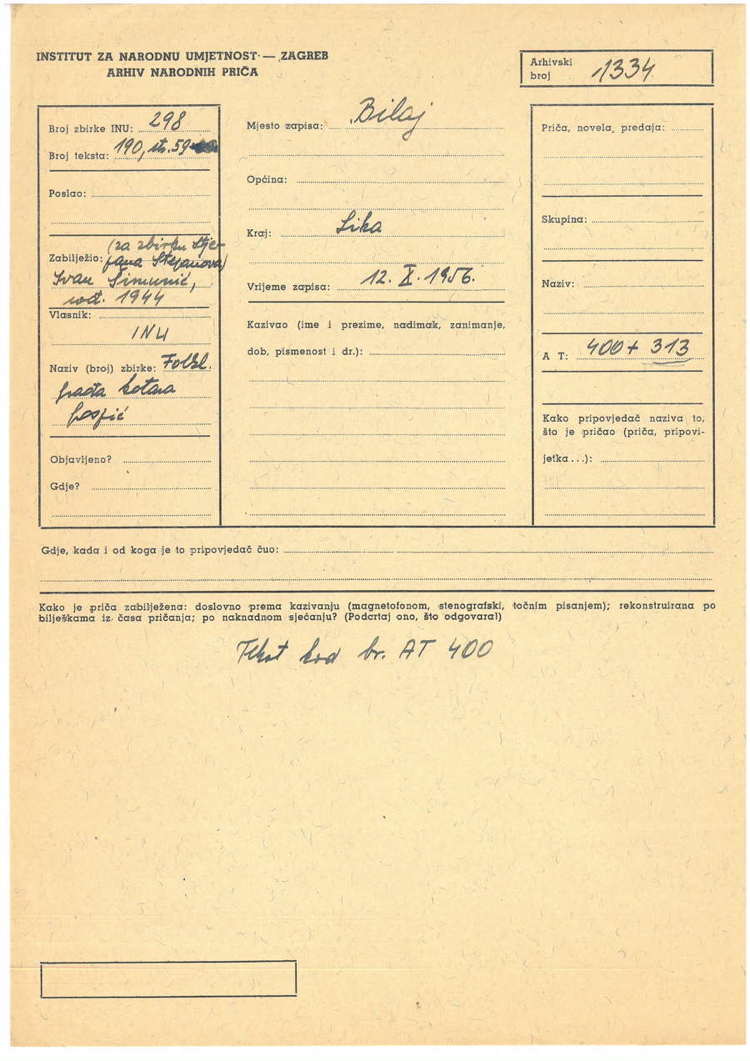 INSTITUT ZA NARODNU UMJETNOST — ZAGREB
ARHIV NARODNIH PRIČA
Arhivski broj 1334
Broj zbirke INU: 298
Broj teksta: 190, str. 59
Poslao:
Zabilježio: (za zbirku Stje-
pana Stepanova)
Ivan Šimunić,
rođ. 1944
Vlasnik:
INU
Naziv (broj) zbirke: Folkl.
građa kotara
Gospić
Objavljeno?
Gdje?
Mjesto zapisa: Bilaj
Općina:
Kraj: Lika
Vrijeme zapisa: 12. X. 1956.
Kazivao (ime i prezime, nadimak, zanimanje,
dob, pismenost i dr.):
Priča, novela, predaja:
Skupina:
Naziv:
A T: 400 + 313
Kako pripovjedač naziva to,
što je pričao (priča, pripovi-
jetka...):
Gdje, kada i od koga je to pripovjedač čuo:
Kako je priča zabilježena: doslovno prema kazivanju (magnetofonom, stenografski, točnim pisanjem); rekonstruirana po
bilješkama iz časa pričanja; po naknadnom sjećanju? (Podcrtaj ono, što odgovara!)
Tekst kod br. AT 400